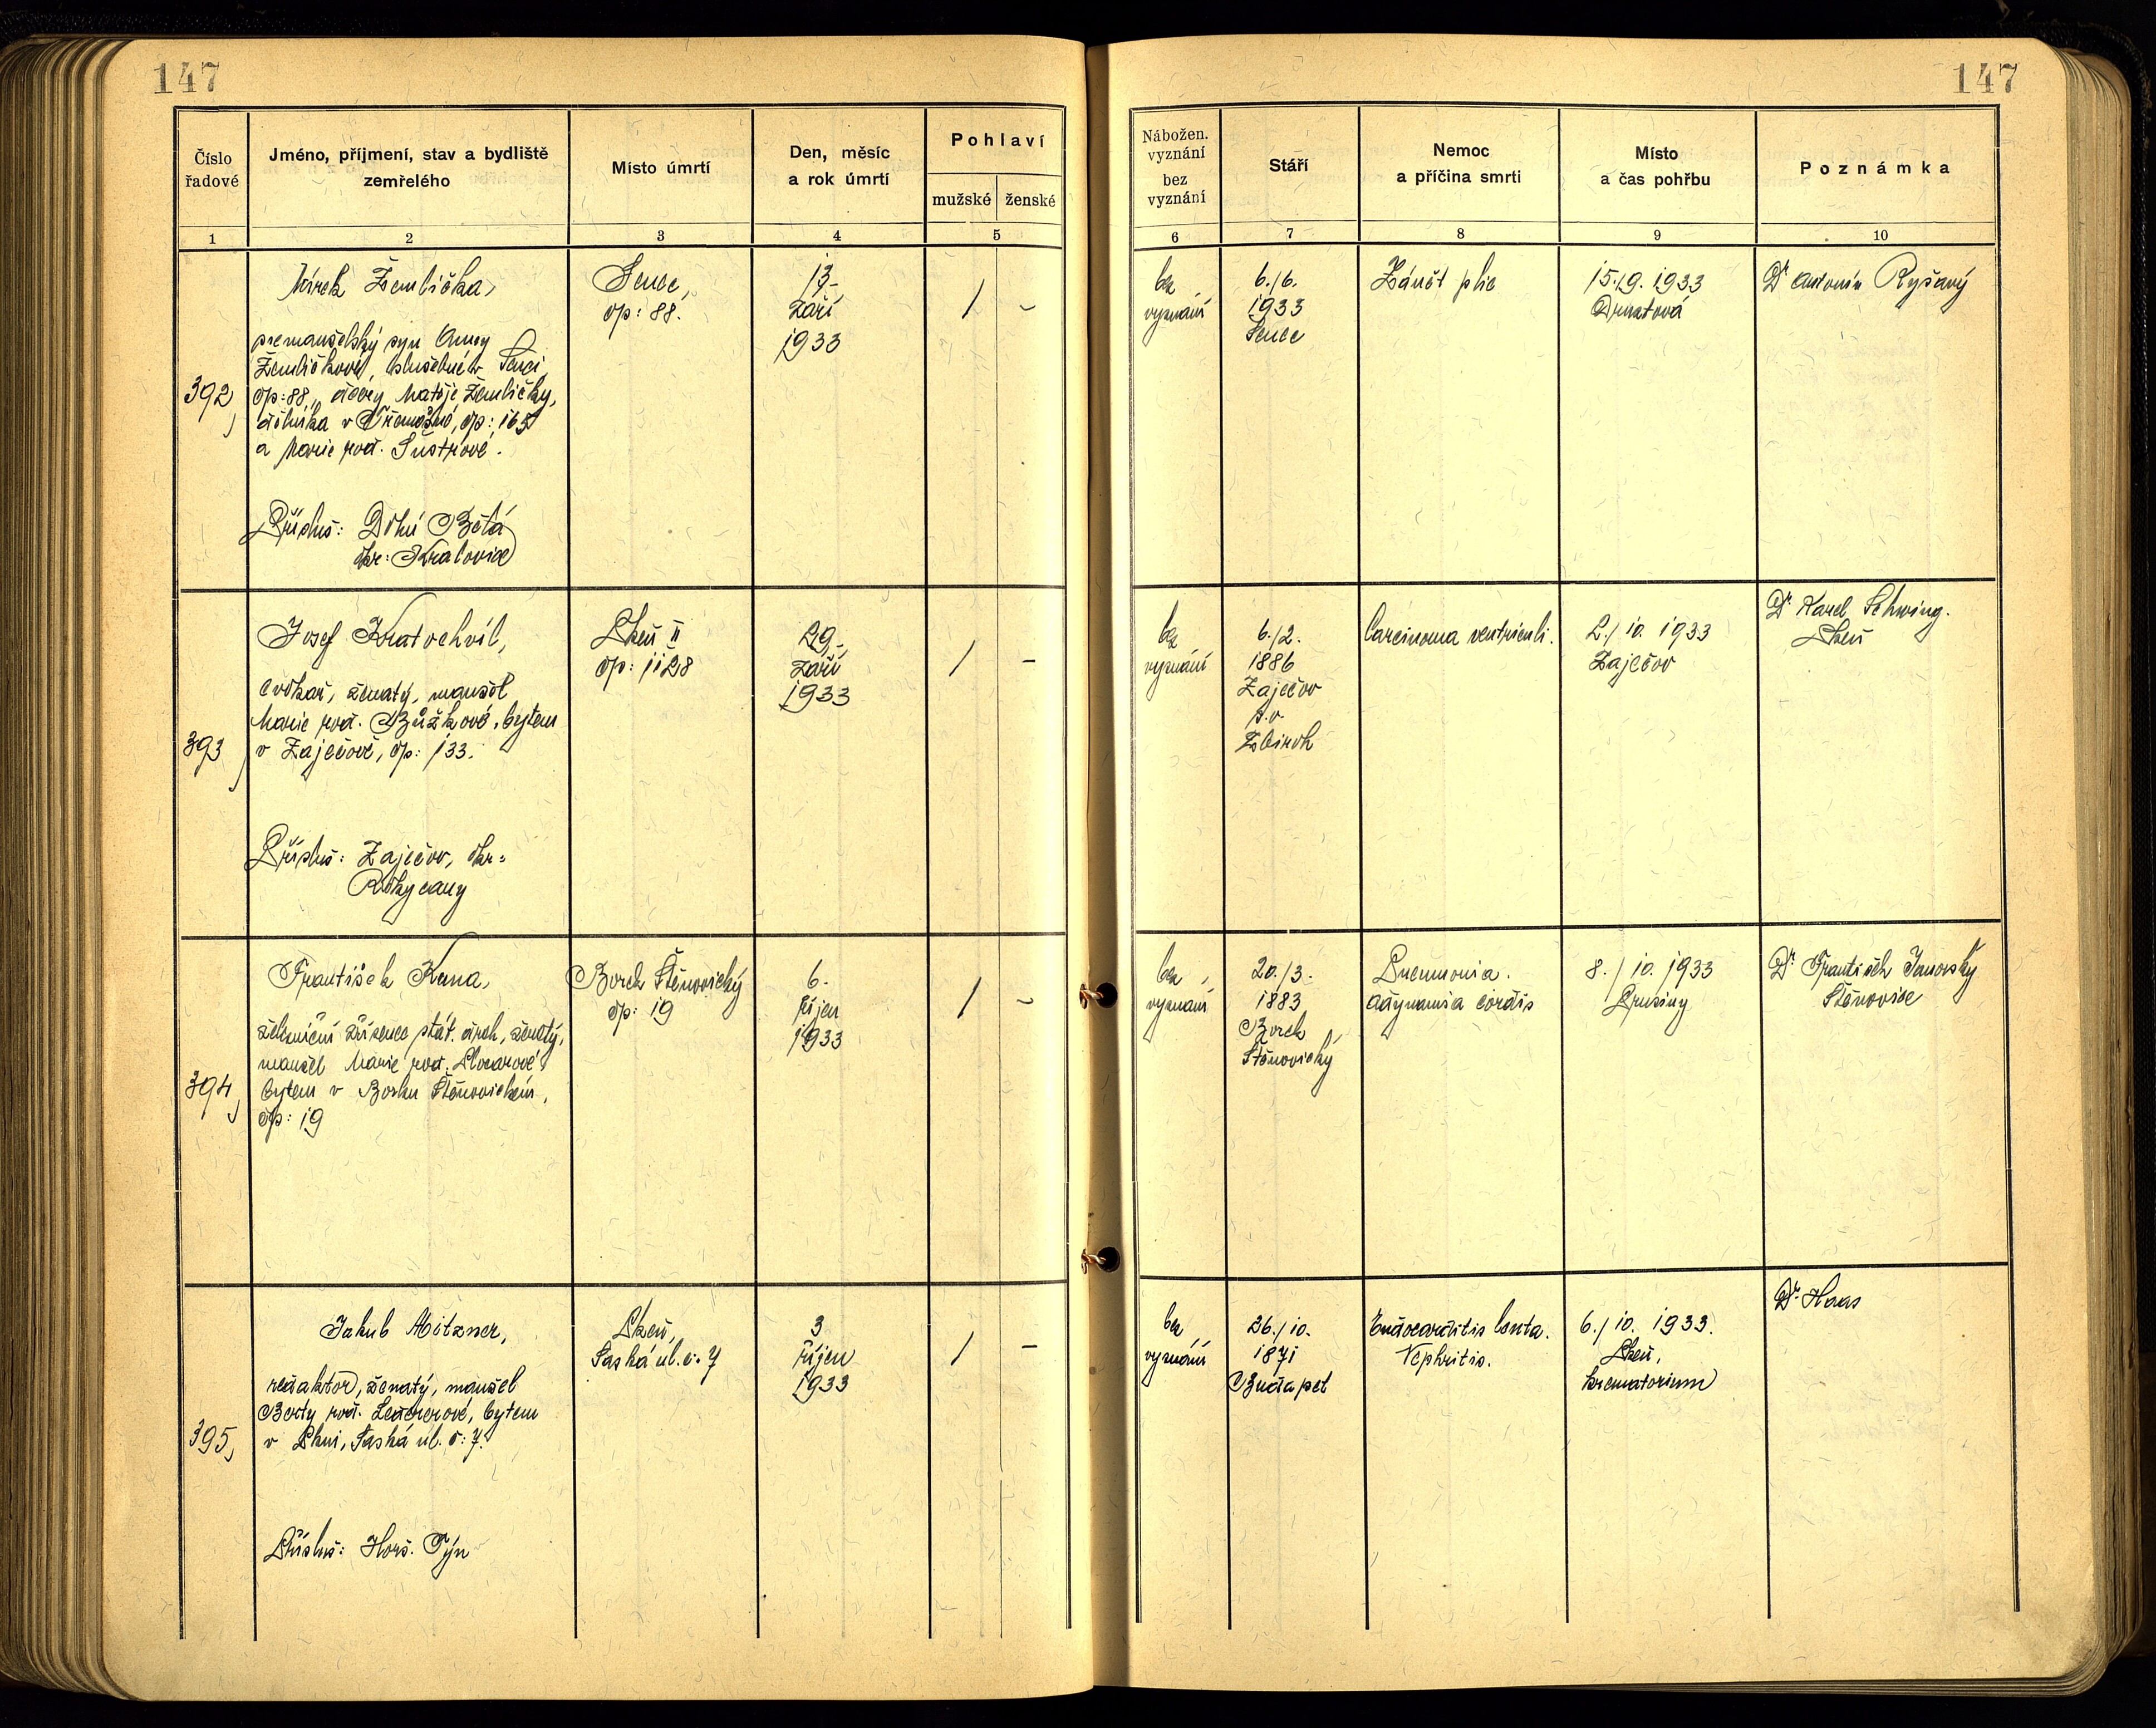 147
147
Číslo
řadové
Jméno, příjmení, stav a bydliště
zemřelého
Místo úmrtí
Den, měsíc
a rok úmrtí
Pohlaví
mužské ženské
Nábožen.
vyznání
bez
vyznání
Stáří
Nemoc
a příčina smrti
Místo
a čas pohřbu
Poznámka
1 2 3 4 5 6 7 8 9 10
392,
Mirek Žemlička,
nemanželský syn Anny
Žemličkové, služebné v Senci,
čp: 88, dcery Matěje Žemličky,
dělníka v Třemošné, čp: 165
a Marie roz. Šustrové.
Přísluš: Dolní Bělá
okr: Kralovice
Senec,
čp: 88.
13.
září
1933
/ -
bez
vyznání
6./6.
1933
Senec
Zánět plic
15./9. 1933
Druztová
Dr. Antonín Ryšavý
393,
Josef Kratochvíl,
cvokař, ženatý, manžel
Marie roz. Bůžkové, bytem
v Zaječově, čp: 133.
Přísluš: Zaječov, okr:
Rokycany
Plzeň II
čp: 1128
29.
září
1933
/ -
bez
vyznání
6./2.
1886
Zaječov
s.o.
Zbiroh
Carcinoma ventriculi.
2./10. 1933
Zaječov
Dr. Karel Schwing.
Plzeň
394,
František Kuna,
železniční zřízenec stát. drah, ženatý,
manžel Marie roz.
bytem v Borku Štěnovickém,
čp: 19
Borek Štěnovický
čp: 19
6.
říjen
1933
/ -
bez
vyznání
20./3.
1883
Borek
Štěnovický
Pneumonia.
adynamia cordis
8./10. 1933
Prusiny
Dr. František Janovský
Štěnovice
395,
Jakub Mitzner,
redaktor, ženatý, manžel
Berty roz. Ledererové, bytem
v Plzni, Saská ul. č: 7.
Přísluš: Horš. Týn
Plzeň,
Saská ul. č. 7
3
říjen
1933
/ -
bez
vyznání
26./10.
1871
Budapeš
Endocarditis lenta.
Nephritis.
6./10. 1933.
Plzeň,
krematorium
Dr. Haas